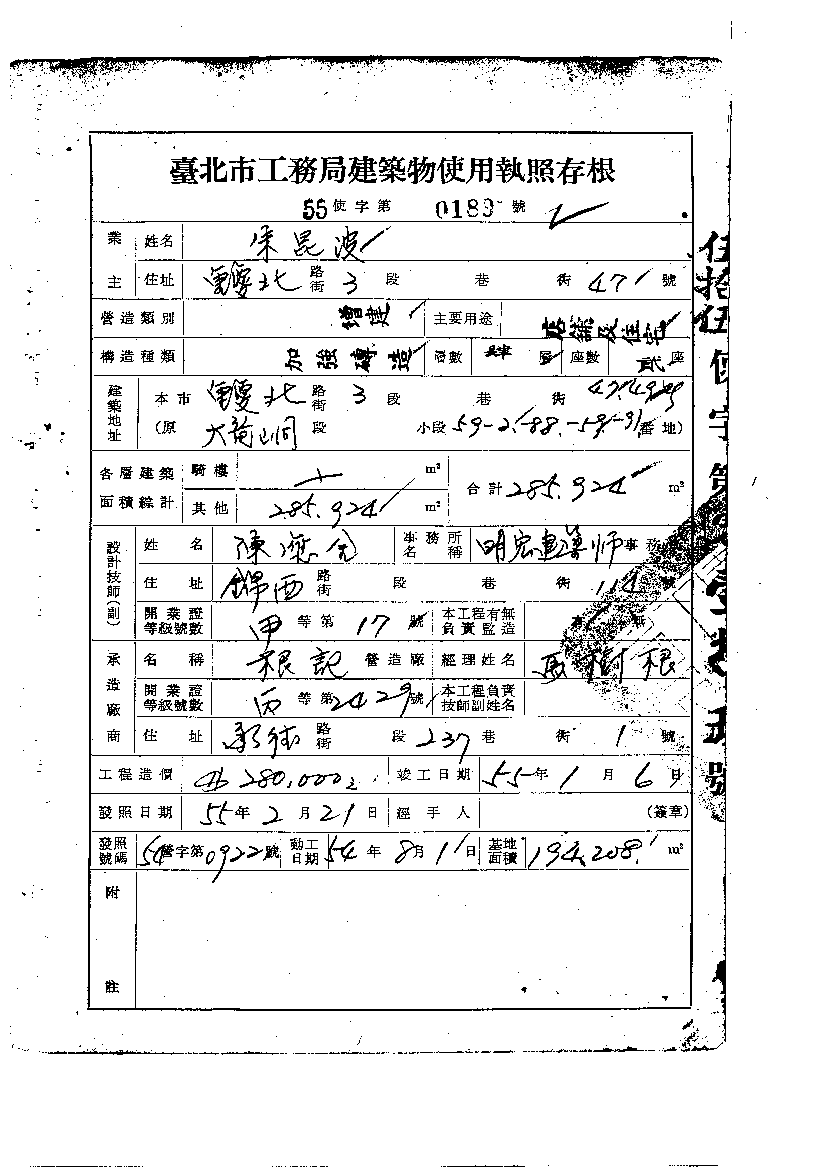 臺北市工務局建築物使用執照存根
55使字第 0189 號
業主 姓名 朱昆波
住址 重慶北 路街 3 段 巷 街 47 號
營造類別 增建 主要用途 店鋪及住宅
構造種類 加強磚造 層數 肆 層 座數 貳 座
建築地址 本市 重慶北 路街 3 段 巷 街 47.49 號
(原 大龍峒 段 小段 59-2 -88 -59 -91 番地)
各層建築面積綜計 騎樓 m² 合計 285.924 m²
其他 285.924 m²
設計技師(副) 姓名 陳應 事務所名稱 明宏建築師事務
住址 錦西 路街 段 巷 街 114 號
開業證等級號數 甲 等第 17 號 本工程有無負責監造 有 無
承造廠商 名稱 根記 營造廠 經理姓名 樹根
開業證等級號數 丙 等第 2429 號 本工程負責技師副姓名
住址 路街 段 237 巷 街 1 號
工程造價 280,000 竣工日期 55年 1 月 6 日
發照日期 55年 2 月 21 日 經手人 (簽章)
發照號碼 54營字第0922號 動工日期 54 年 8月 1 日 基地面積 194.208 m²
附註
伍拾伍使字第 壹 號